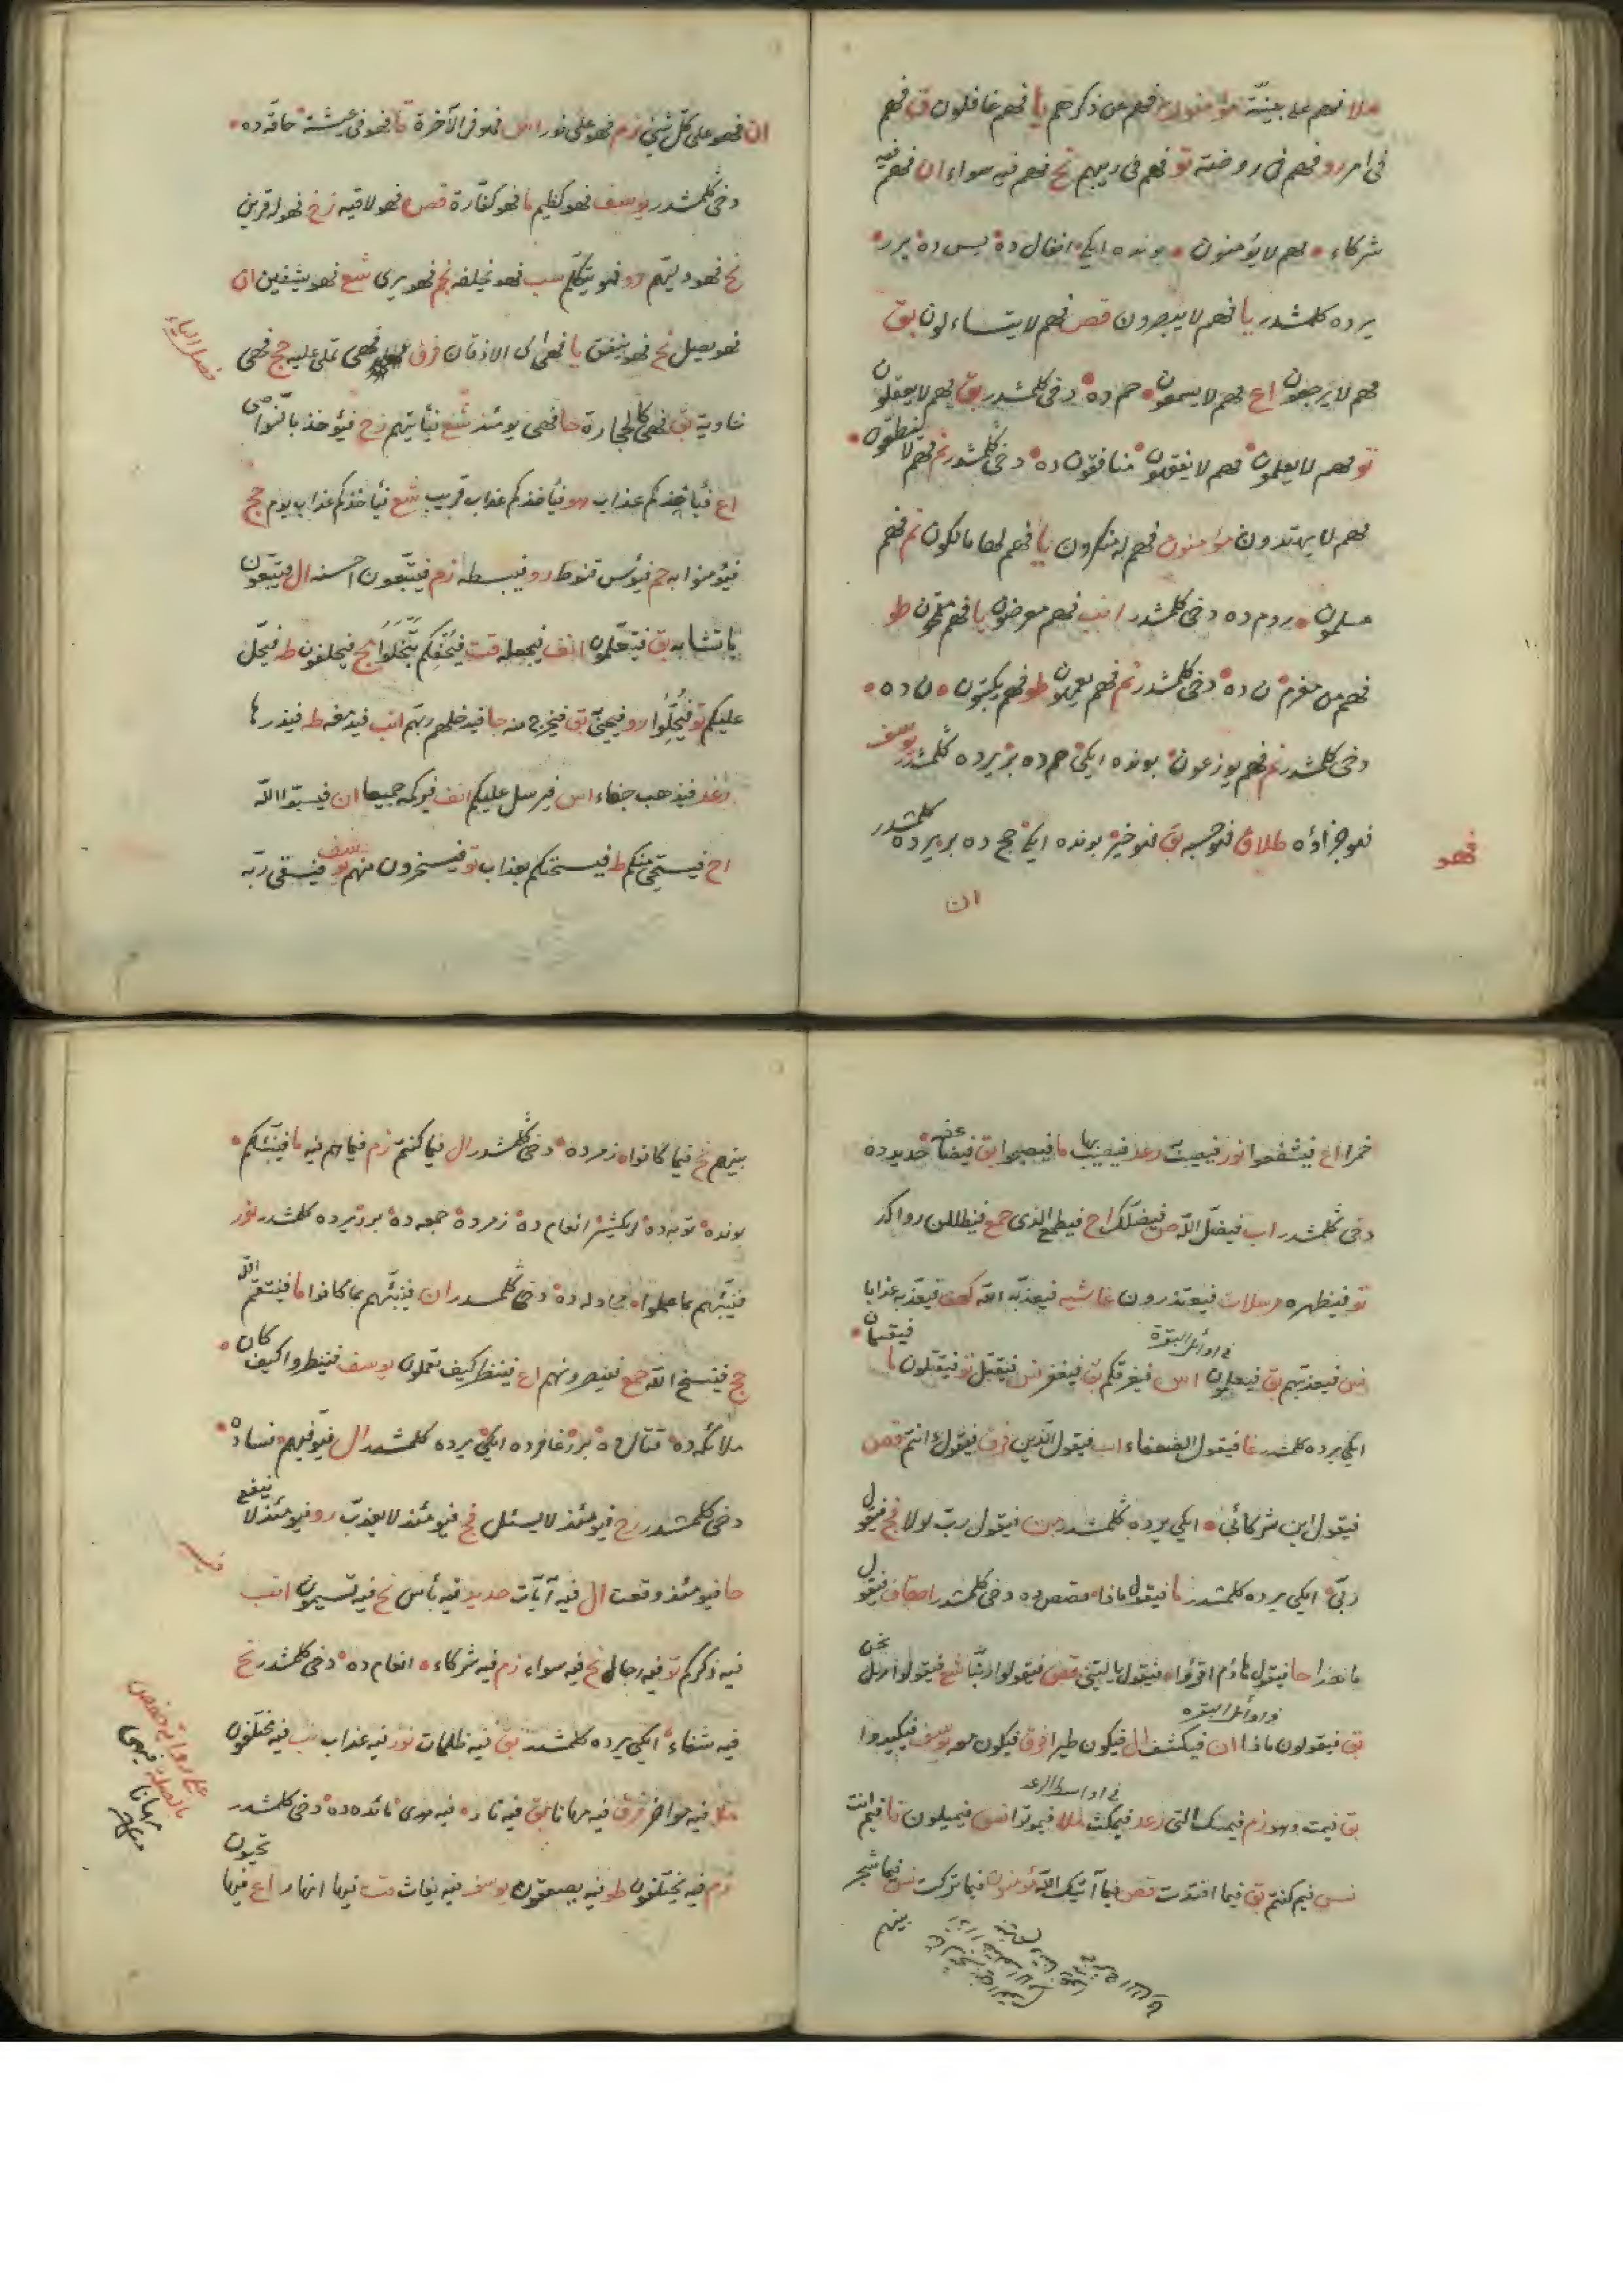 ملا فهم على بينة مؤمنون فهم عن ذكرهم يا فهم غافلون ق فهم
فى امر رو فهم فى روضة تو فهم فى ريبهم نح فهم فيه سواء ان فهم فيه
شركاء • فهم لا يؤمنون • بونده ايكى انفال ده يس ده برر
يرده كلمشدر يا فهم لا يبصرون قص فهم لا يتساءلون بق
فهم لا يرجعون اع فهم لا يسمعون حم ده دخى كلمشدر بق فهم لا يعقلون
تو فهم لا يعلمون فهم لا يفقهون منافقون ده دخى كلمشدر نم فهم لا ينطقون
فهم لا يهتدون مؤمنون فهم له منكرون يا فهم لها مالكون نم فهم
مسلمون • روم ده دخى كلمشدر انب فهم معرضون يا فهم مقمحون طو
فهم من مغرم ن ده دخى كلمشدر نم فهم يعمهون طو فهم يكتبون ن ده
دخى كلمشدر نم فهم يوزعون بونده ايكى حم ده بر يرده كلمشدر يوسف
فهو جزاؤه طلاق فهو حسبه بق فهو خير بونده ايكى حج ده بر يرده كلمشدر
فهو
ان
ان فهو على كل شئ زم فهو على نور اس فهو فى الآخرة قا فهو فى عيشة حاقه ده
دخى كلمشدر يوسف فهو كظيم ما فهو كفارة قص فهو لاقيه زخ فهو له قرين
نح فهو وليهم رو فهو يتكلم سب فهو يخلفه نجم فهو يرى شع فهو يشفين ان
فهو يصل نح فهو ينفق يا فهى الى الاذقان فرق فهى تملى عليه حج فهى
فصل الياء
خاوية بق فهى كالحجارة حا فهى يومئذ شع فيأتيهم رح فيؤخذ بالنواصى
اع فيأخذكم عذاب هو فيأخذكم عذاب قريب شع فيأخذكم عذاب يوم حج
فيؤمنوا به حم فيؤس قنوط رو فيبسطه زم فيتبعون احسنه ال فيتبعون
ما تشابه بق فيتعلمون انف فيجعله قت فيحفكم تبخلوا مج فيحلفون طه فيحل
عليكم تو فيحلوا رو فيحيى بق فيخرج منه جا فيدخلهم ربهم انب فيدمغه طه فيذرها
رعد فيذهب جفاء اس فيرسل عليكم انف فيركمه جميعا ان فيسبوا الله
اح فيستحى منكم ط فيسحتكم بعذاب تو فيسخرون منهم يوسف فيسقى ربه
خمرا اع فيشفعوا نور فيصيب رعد فيصيب بها ما فيصبحوا بق فيضاعفه حديد ده
دخى كلمشدر اب فيضل الله ص فيضلك اح فيطمع الذى جمع فيظللن رواكد
تو فينظهره مرسلات فيعتذرون غاشيه فيعذبه الله كهف فيعذبه عذابا
فى اوائل البقرة
نس فيعذبهم بق فيعلمون اس فيغرقكم بق فيغفر نس فيقتل تو فيقتلون ما فيقسمان
ايكى يرده كلمشدر غا فيقول الضعفاء اب فيقول الذين فرق فيقول ءانتم قص
فيقول اين شركائى • ايكى يرده كلمشدر من فيقول رب لولا فج فيقول
ربى ايكى يرده كلمشدر ما فيقول ماذا قصص ده دخى كلمشدر احقاف فيقول
ما هذا حا فيقول هاؤم اقرؤا فيقول ياليتنى قص فيقولوا ربنا شع فيقولوا هل نحن
فى اوائل البقره
بق فيقولون ماذا ان فيكشف ال فيكون طيرا فرق فيكون معه يوسف فيكيدوا
فى اواسط الرعد
بق فيمت وهو زم فيمسك التى رعد فيمكث ملا فيموتوا نس فيميلون نا فيم انت
نس فيم كنتم بق فيما افتدت قص فيما آتيك الله مؤمنون فيما تركت نس فيما شجر
بينهم
بينهم نح فيما كانوا زمر ده دخى كلمشدر ال فيما كنتم زم فيما هم فيه ما فينبئكم
بونده توبه ده ايكيشر انعام ده زمر ده جمعه ده برر يرده كلمشدر نور
فينبئهم بما عملوا مجادله ده دخى كلمشدر ان فينبئهم بما كانوا ما فينتقم الله
حج فينسخ الله جمع فينصرونهم اع فينظر كيف تعملون يوسف فينظروا كيف كان
ملائكه ده قتال ده برر غافر ده ايكى يرده كلمشدر ال فيوفيهم نساده
دخى كلمشدر رح فيومئذ لا يسئل فج فيومئذ لا يعذب رو فيومئذ لا ينفع
حا فيومئذ وقعت ال فيه آيات حديد فيه بأس نح فيه تسيمون انب
فيه
فيه ذكركم تو فيه رجال نح فيه سواء زم فيه شركاء انعام ده دخى كلمشدر نح
فيه شفاء ايكى يرده كلمشدر بق فيه ظلمات نور فيه عذاب نب فيه مختلفون
ملا فيه مواخر فرق فيه مهانا بق فيه نار فيه هدى مائده ده دخى كلمشدر
على رواية حفص بالصلة فيهى مهانا
زم فيه يختلفون طو فيه يصعقون يوسف فيه يغاث مت فيها انهار اع فيها تحيون